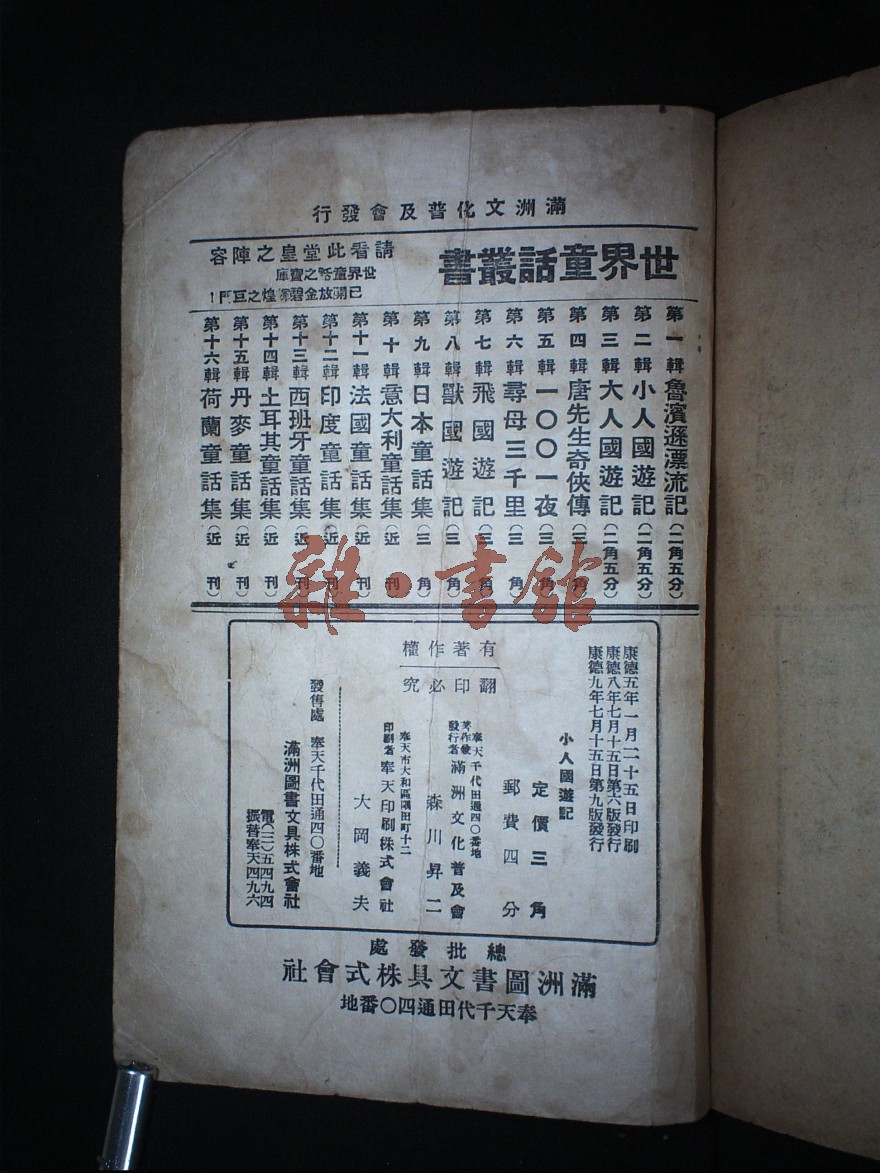 滿洲文化普及會發行
世界童話叢書
請看此堂皇之陣容
世界童話之寶庫
已開放金碧輝煌之巨門！
第一輯 魯濱遜漂流記（二角五分）
第二輯 小人國遊記（二角五分）
第三輯 大人國遊記（二角五分）
第四輯 唐先生奇俠傳（三角）
第五輯 一〇〇一夜（三角）
第六輯 尋母三千里（三角）
第七輯 飛國遊記（三角）
第八輯 獸國遊記（三角）
第九輯 日本童話集（三角）
第十輯 意大利童話集（近刊）
第十一輯 法國童話集（近刊）
第十二輯 印度童話集（近刊）
第十三輯 西班牙童話集（近刊）
第十四輯 土耳其童話集（近刊）
第十五輯 丹麥童話集（近刊）
第十六輯 荷蘭童話集（近刊）
雜·書館
康德五年一月二十五日印刷
康德八年七月十五日第六版發行
康德九年七月十五日第九版發行
小人國遊記
定價三角
郵費四分
有著作權
翻印必究
奉天千代田通四〇番地
著作兼發行者 滿洲文化普及會
森川昇二
奉天市大和區隅田町十二
印刷者 奉天印刷株式會社
大岡義夫
發售處 奉天千代田通四〇番地
滿洲圖書文具株式會社
電（三）五四九四
振替奉天四九六
總批發處
滿洲圖書文具株式會社
奉天千代田通四〇番地